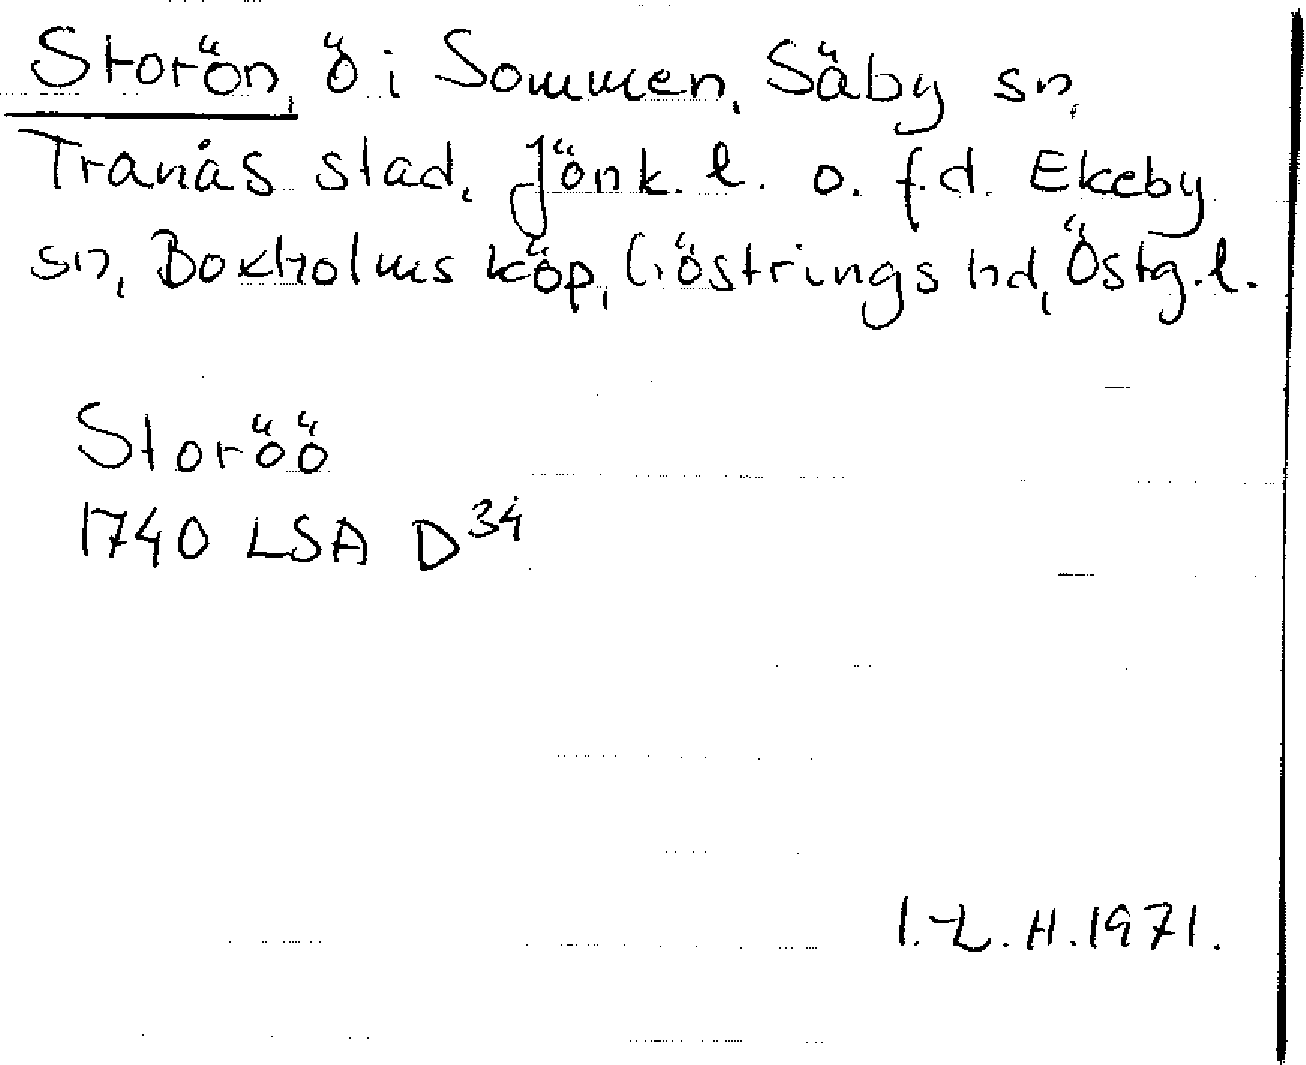 Storön, ö i Sommen, Säby sn,
Tranås stad, Jönk. l. o. f.d. Ekeby
sn, Boxholms köp, Göstrings hd, Östg. l.
Storöö
1740 LSA D34
I.-L. H. 1971.